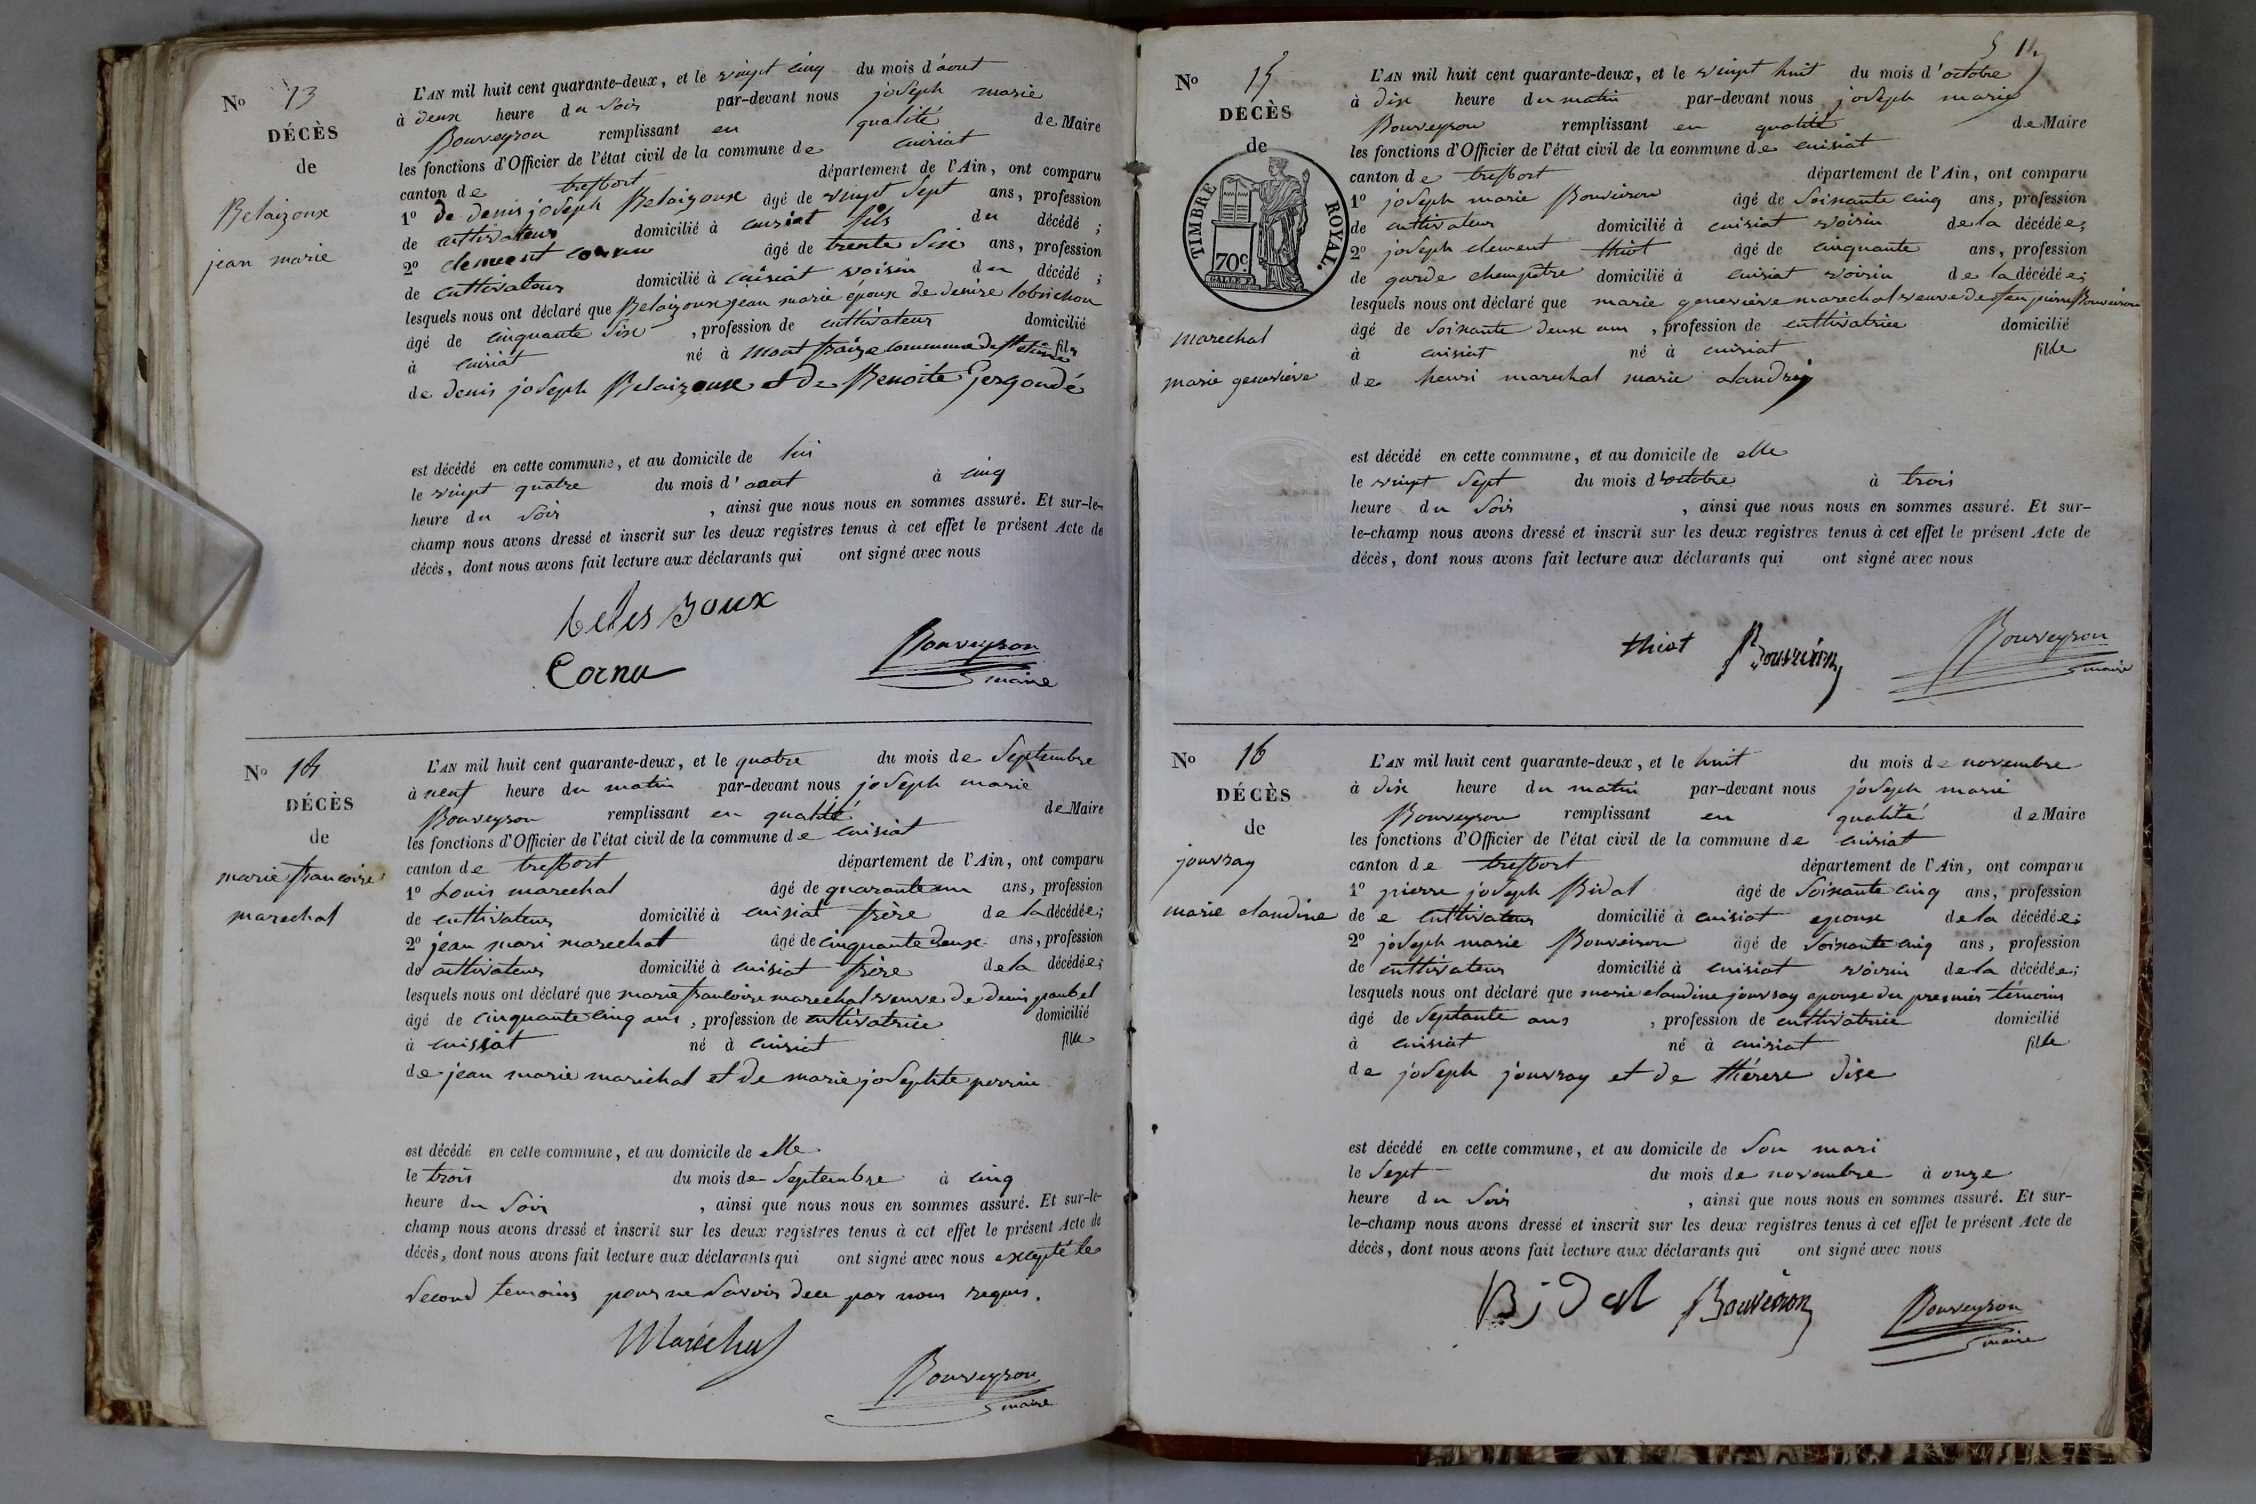 No 13
DÉCÈS
de
Belaizoux
jean marie
L'AN mil huit cent quarante-deux, et le vingt cinq du mois d'aout
à deux heure du soir par-devant nous joseph marie
Bouveyron remplissant en qualité de Maire
les fonctions d'Officier de l'état civil de la commune de cuisiat
canton de treffort département de l'Ain, ont comparu
1o de denis joseph Belaizoux âgé de vingt sept ans, profession
de cultivateur domicilié à cuisiat fils du décédé ;
2o clement cornu âgé de trente six ans, profession
de cultivateur domicilié à cuisiat voisin du décédé ;
lesquels nous ont déclaré que Belaizoux jean marie époux de denise lobrichon
âgé de cinquante six , profession de cultivateur domicilié
à cuisiat né à mont fraize commune de st etienne fils
de denis joseph Belaizoux et de Benoite Gergondé
est décédé en cette commune, et au domicile de lui
le vingt quatre du mois d'aout à cinq
heure du soir , ainsi que nous nous en sommes assuré. Et sur-le-
champ nous avons dressé et inscrit sur les deux registres tenus à cet effet le présent Acte de
décès, dont nous avons fait lecture aux déclarants qui ont signé avec nous
Cornu
Bouveyron
maire
No 14
DÉCÈS
de
marie francoise
marechal
L'AN mil huit cent quarante-deux, et le quatre du mois de septembre
à neuf heure du matin par-devant nous joseph marie
Bouveyron remplissant en qualité de Maire
les fonctions d'Officier de l'état civil de la commune de cuisiat
canton de treffort département de l'Ain, ont comparu
1o Louis marechal âgé de quarante un ans, profession
de cultivateur domicilié à cuisiat frère de la décédée;
2o jean mari marechal âgé de cinquante deux ans, profession
de cultivateur domicilié à cuisiat frère de la décédée;
lesquels nous ont déclaré que marie francoise marechal veuve de denis paubel
âgé de cinquante cinq ans, profession de cultivatrice domicilié
à cuisiat né à cuisiat fille
de jean marie marichal et de marie josephte perrin
est décédé en cette commune, et au domicile de elle
le trois du mois de septembre à cinq
heure du soir , ainsi que nous nous en sommes assuré. Et sur-le-
champ nous avons dressé et inscrit sur les deux registres tenus à cet effet le présent Acte de
décès, dont nous avons fait lecture aux déclarants qui ont signé avec nous excepté le
second temoins pour ne savoir de ce par nous requis.
Maréchal
Bouveyron
maire
No 15
DÉCÈS
de
TIMBRE ROYAL.
70c.
marechal
marie geneviève
L'AN mil huit cent quarante-deux, et le vingt huit du mois d'octobre
à dix heure du matin par-devant nous joseph marie
Bouveyron remplissant en qualité de Maire
les fonctions d'Officier de l'état civil de la commune de cuisiat
canton de treffort département de l'Ain, ont comparu
1o joseph marie Bouveiron âgé de soixante cinq ans, profession
de cultivateur domicilié à cuisiat voisin de la décédée;
2o joseph clement thiot âgé de cinquante ans, profession
de garde champêtre domicilié à cuisiat voisin de la décédée;
lesquels nous ont déclaré que marie geneviève marechal veuve de feu pierre Bouveiron
âgé de soixante deux ans , profession de cultivatrice domicilié
à cuisiat né à cuisiat fille
de henri marechal marie
est décédé en cette commune, et au domicile de elle
le vingt sept du mois d'octobre à trois
heure du soir , ainsi que nous nous en sommes assuré. Et sur-
le-champ nous avons dressé et inscrit sur les deux registres tenus à cet effet le présent Acte de
décès, dont nous avons fait lecture aux déclarants qui ont signé avec nous
thiot Bouveiron Bouveyron
maire
No 16
DÉCÈS
de
jouvray
marie claudine
L'AN mil huit cent quarante-deux, et le huit du mois de novembre
à dix heure du matin par-devant nous joseph marie
Bouveyron remplissant en qualité de Maire
les fonctions d'Officier de l'état civil de la commune de cuisiat
canton de treffort département de l'Ain, ont comparu
1o pierre joseph Bidat âgé de soixante cinq ans, profession
de e cultivateur domicilié à cuisiat epoux de la décédée;
2o joseph marie Bouveiron âgé de soixante cinq ans, profession
de cultivateur domicilié à cuisiat voisin de la décédée;
lesquels nous ont déclaré que marie claudine jouvray epouse du premier témoins
âgé de septante ans , profession de cultivatrice domicilié
à cuisiat né à cuisiat fille
de joseph jouvray et de thérese dize
est décédé en cette commune, et au domicile de son mari
le sept du mois de novembre à onze
heure du soir , ainsi que nous nous en sommes assuré. Et sur-
le-champ nous avons dressé et inscrit sur les deux registres tenus à cet effet le présent Acte de
décès, dont nous avons fait lecture aux déclarants qui ont signé avec nous
Bouveiron Bouveyron
maire